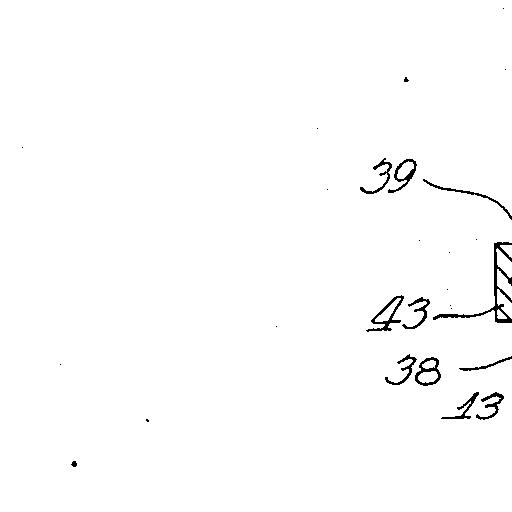 39
43
38
13